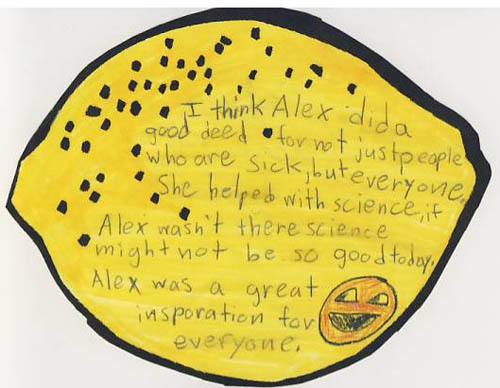 I think Alex did a
good deed for not just people
who are sick, but everyone.
She helped with science, if
Alex wasn't there science
might not be so good today.
Alex was a great
insporation for
everyone.